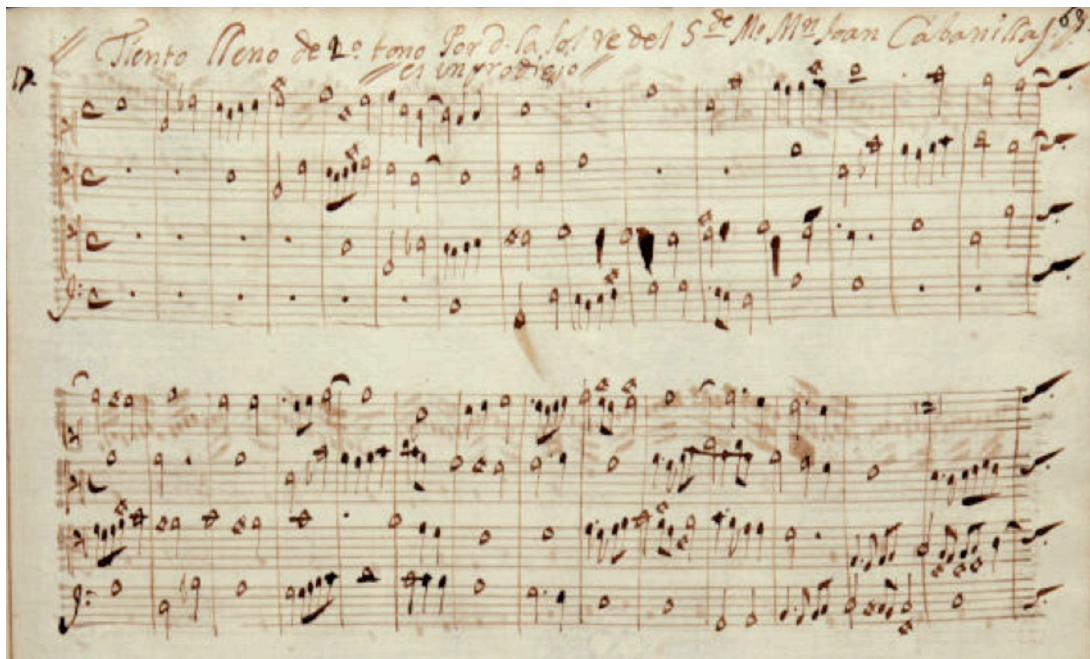 Tiento lleno de 1º. tono Por d. la sol re del S.de Mº Mn Joan Cabanillas.
es un prodigio
17